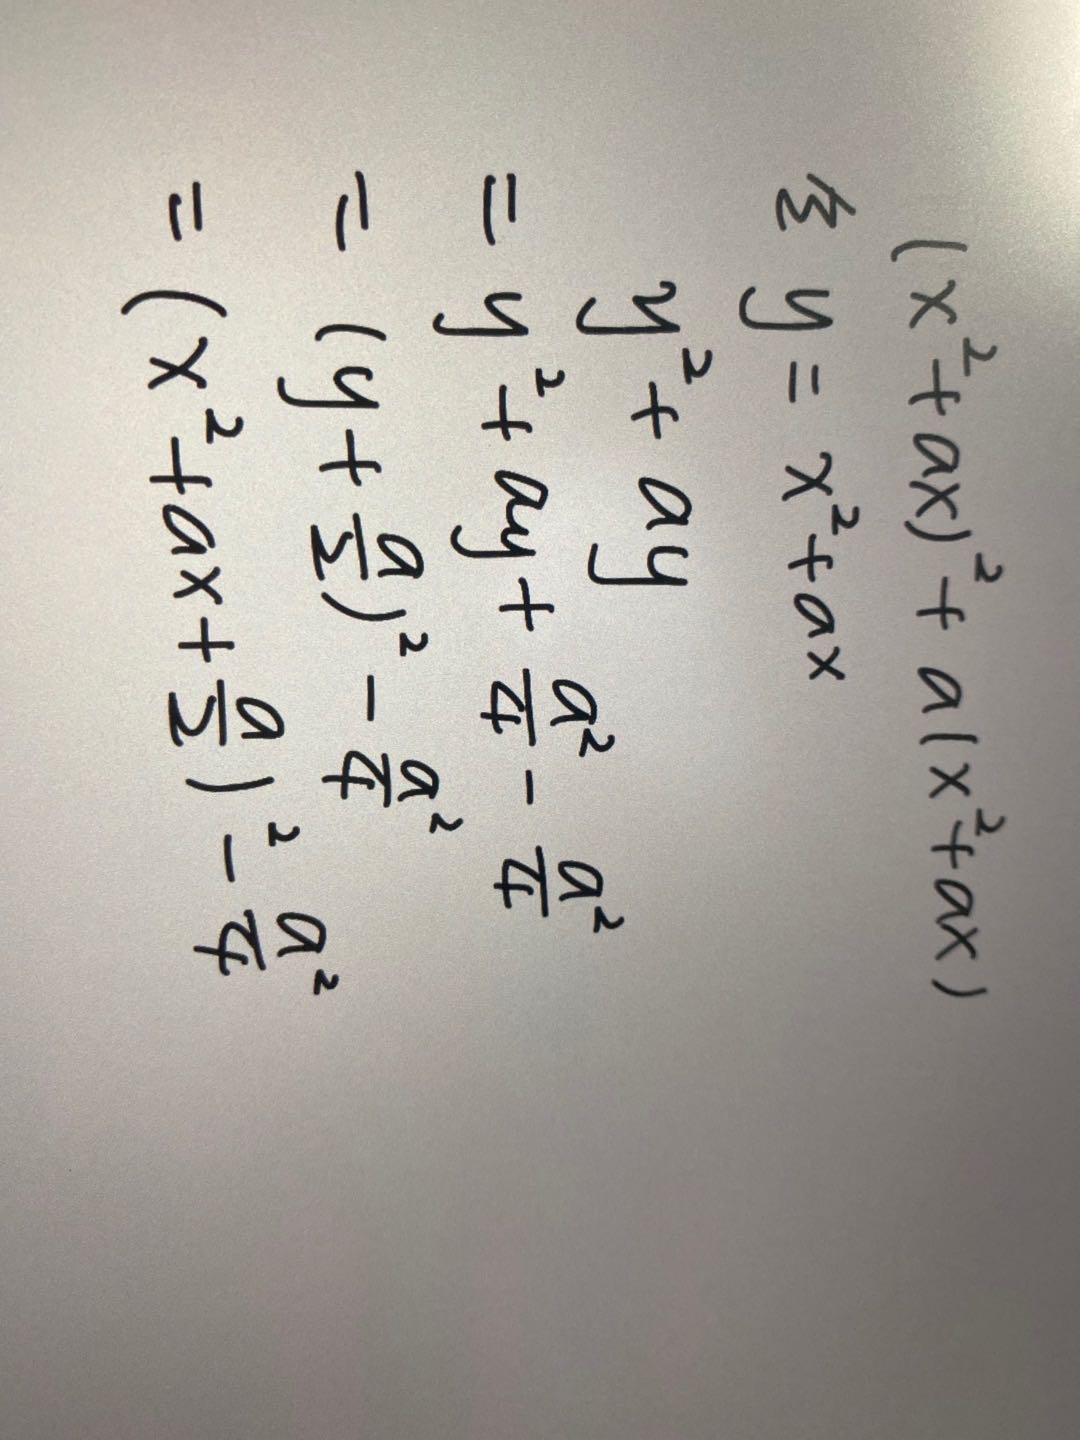 (x²+ax)²+a(x²+ax)
令 y=x²+ax
y²+ay
=y²+ay+a²/4-a²/4
=(y+a/2)²-a²/4
=(x²+ax+a/2)²-a²/4